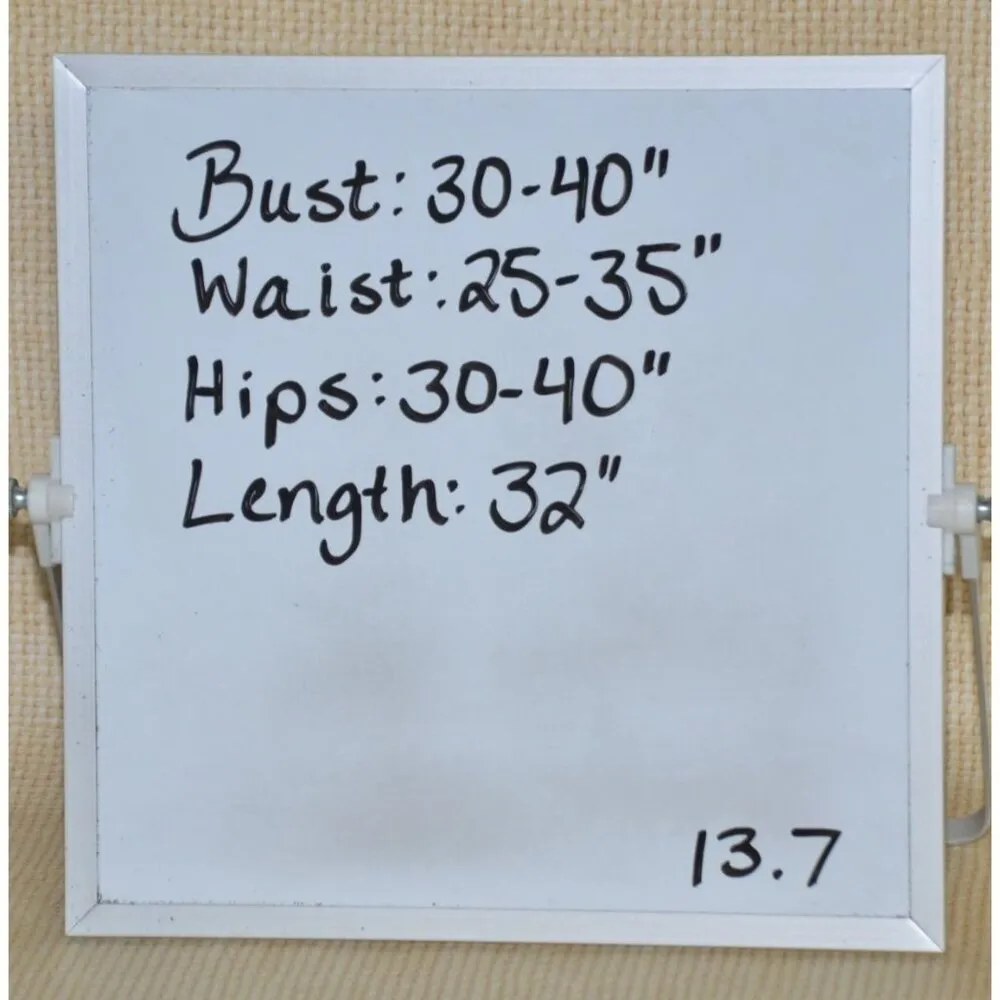 Bust: 30-40"
Waist: 25-35"
Hips: 30-40"
Length: 32"
13.7